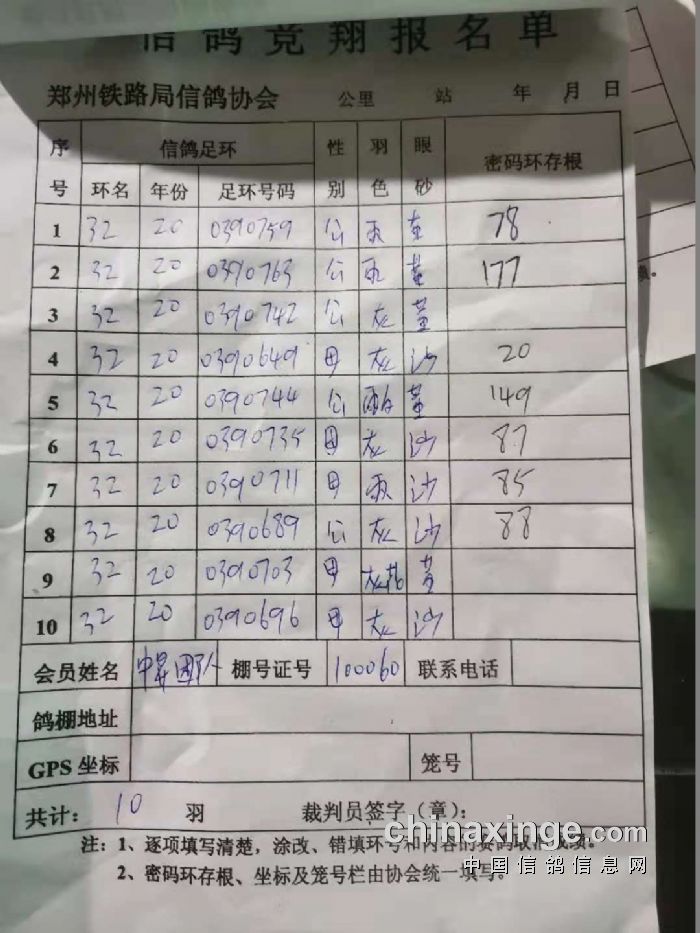 信鸽竞翔报名单
郑州铁路局信鸽协会 公里 站 年 月 日
序号 信鸽足环 性别 羽色 眼砂 密码环存根
环名 年份 足环号码
1 32 20 0390759 公 雨 黄 78
2 32 20 0390763 公 雨 黄 177
3 32 20 0390742 公 灰 黄
4 32 20 0390649 母 灰 沙 20
5 32 20 0390744 公 黄 149
6 32 20 0390735 母 灰 沙 87
7 32 20 0390711 母 雨 沙 85
8 32 20 0390689 公 灰 沙 88
9 32 20 0390703 母 灰花 黄
10 32 20 0390696 母 灰 沙
会员姓名 中昇团队 棚号证号 100060 联系电话
鸽棚地址
GPS 坐标 笼号
共计: 10 羽 裁判员签字(章):
注:1、逐项填写清楚,涂改、错填环号和内容的赛鸽取消成绩。
2、密码环存根、坐标及笼号栏由协会统一填写。
chinaxinge.com
中国信鸽信息网